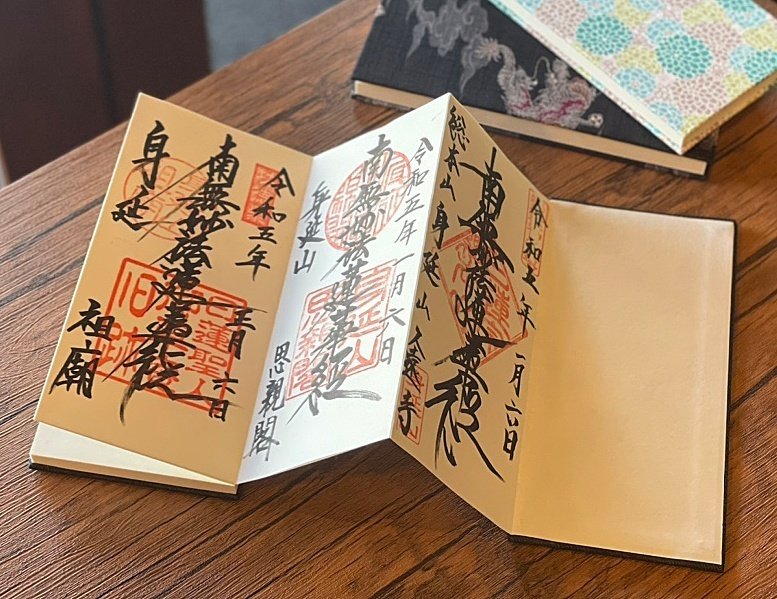 令和五年 一月六日
南無妙法蓮華経
総本山 身延山 久遠寺
令和五年一月六日
南無妙法蓮華経
身延山 思親閣
令和五年 正月六日
南無妙法蓮華経
身延 祖廟
日蓮聖人
旧跡